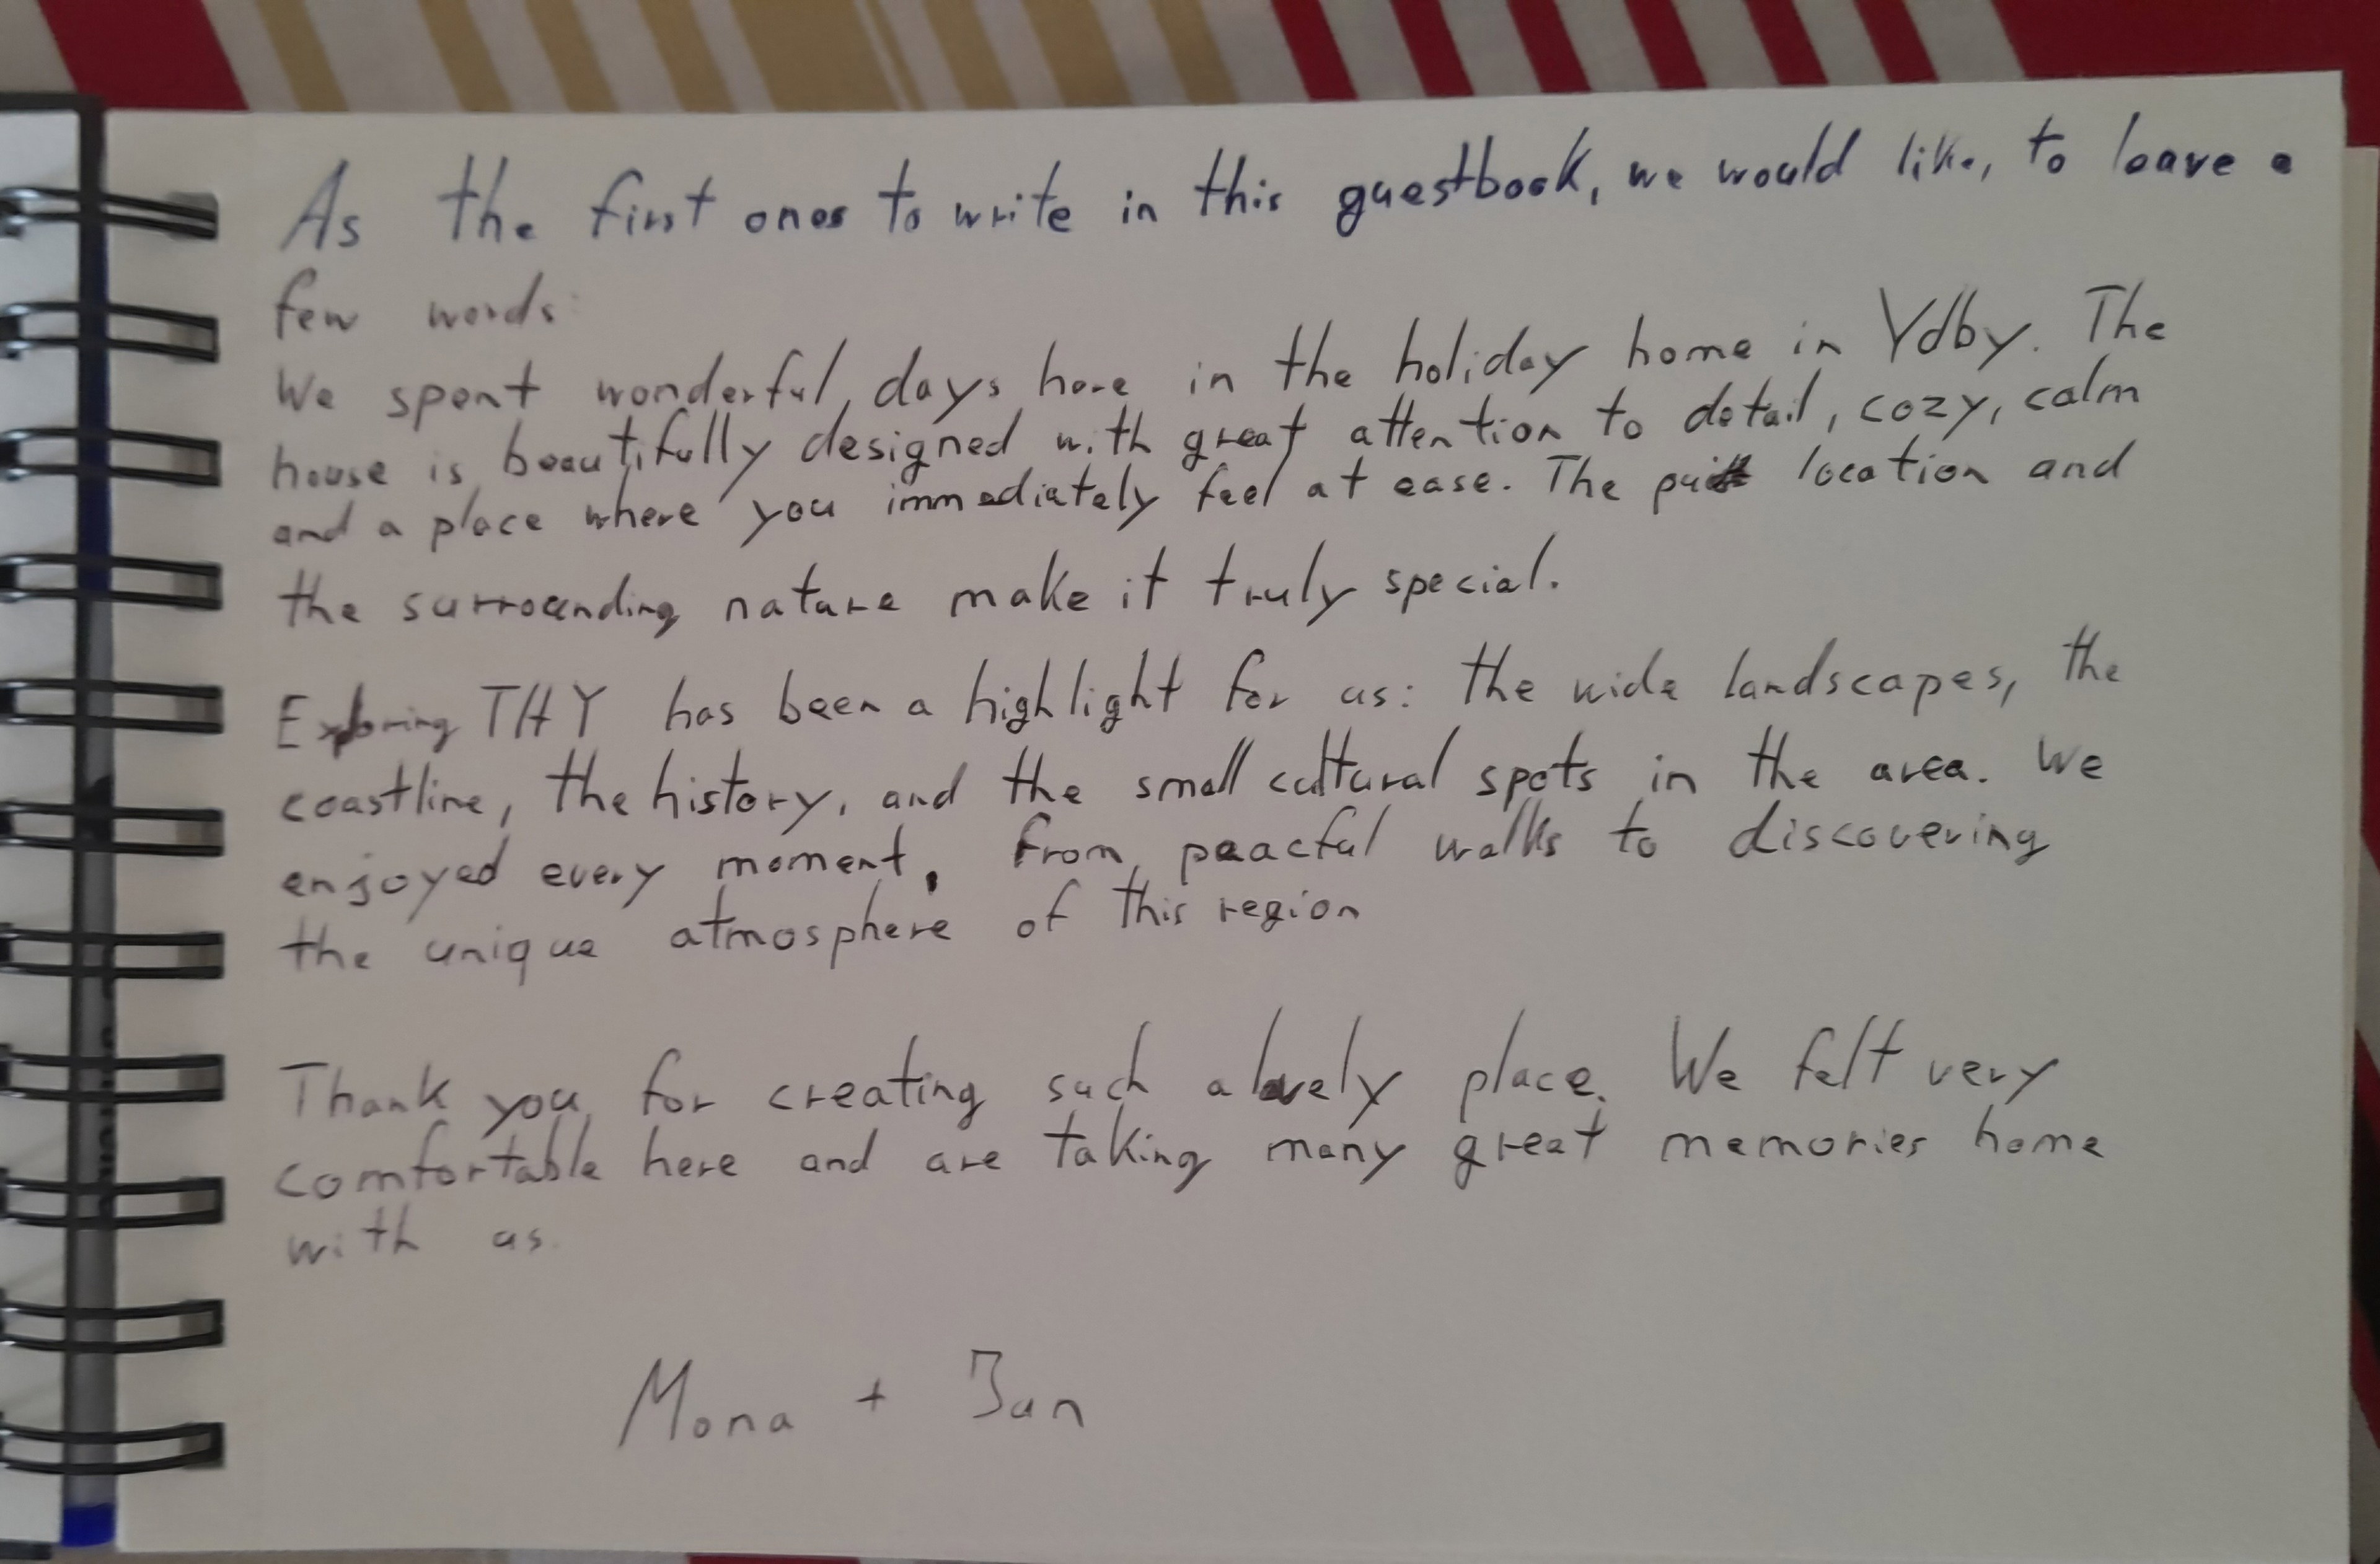 As the first ones to write in this guestbook, we would like, to leave a
few words:
We spent wonderful days here in the holiday home in Ydby. The
house is beautifully designed with great attention to detail, cozy, calm
and a place where you immediately feel at ease. The location and
the surrounding nature make it truly special.
Exploring THY has been a highlight for us: the wide landscapes, the
coastline, the history, and the small cultural spots in the area. We
enjoyed every moment, from peacful walks to discovering
the unique atmosphere of this region
Thank you for creating such a lovely place. We felt very
comfortable here and are taking many great memories home
with us.
Mona + Jan